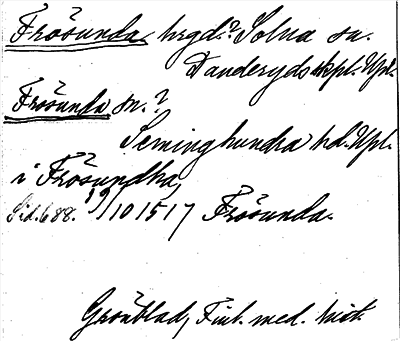 Frösunda hrgd.? Solna sn.
Danderyds skpl. Upl.
Frösunda sn.?
Seminghundra hd. Upl.
i Frösundha,
Sid. 688. 19/10 1517 Frösunda.
Grönblad, Finl. med. hist.